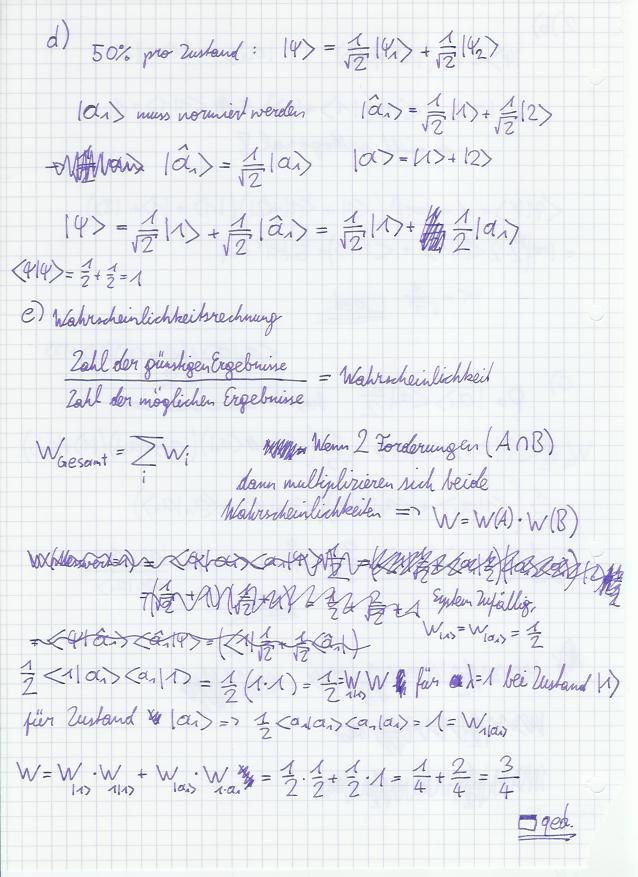 d) 50% pro Zustand : |ψ> = 1/√2 |ψ₁> + 1/√2 |ψ₂>
|a₁> muss normiert werden |â₁> = 1/√2 |1> + 1/√2 |2>
|â₁> = 1/√2 |a₁> |a> = |1> + |2>
|ψ> = 1/√2 |1> + 1/√2 |â₁> = 1/√2 |1> + 1/2 |a₁>
<ψ|ψ> = 1/2 + 1/2 = 1
e) Wahrscheinlichkeitsrechnung
Zahl der günstigen Ergebnisse / Zahl der möglichen Ergebnisse = Wahrscheinlichkeit
W_Gesamt = Σ_i W_i Wenn 2 Forderungen (A∩B)
dann multiplizieren sich beide
Wahrscheinlichkeiten => W = W(A)·W(B)
System zufällig,
W_|1> = W_|a₁> = 1/2
1/2 <1|a₁> <a₁|1> = 1/2 (1·1) = 1/2 = W_1|1> für λ=1 bei Zustand |1>
für Zustand |a₁> => 1/2 <a₁|a₁> <a₁|a₁> = 1 = W_1|a₁>
W = W_|1> · W_1|1> + W_|a₁> · W_1·a₁ = 1/2 · 1/2 + 1/2 · 1 = 1/4 + 2/4 = 3/4
qed.